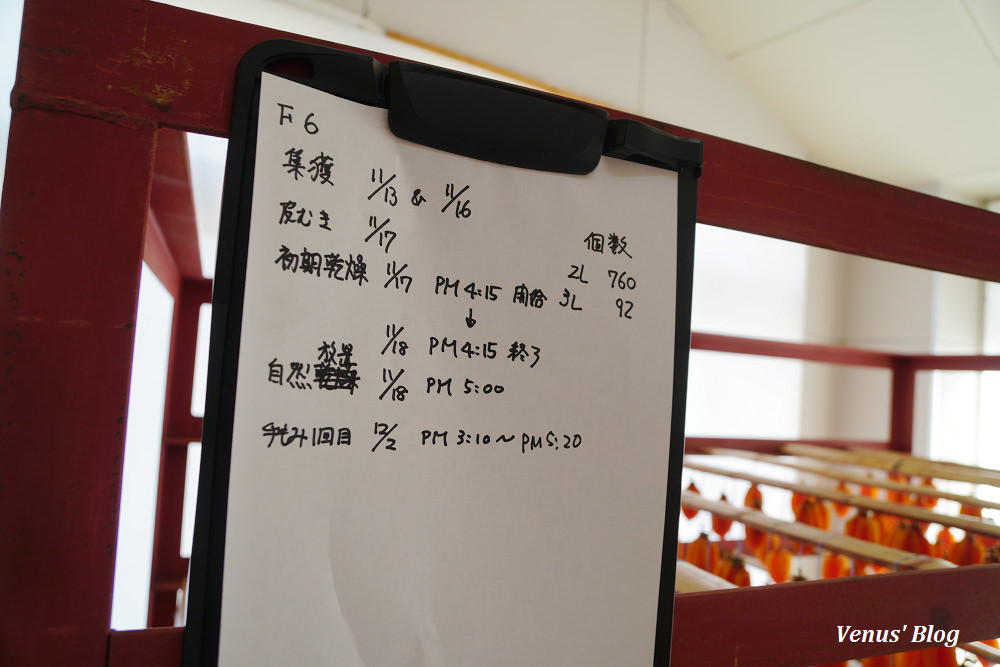 F6
集獲 11/13 & 11/16
皮むき 11/17
個数
2L 760
3L 92
初期乾燥 11/17 PM 4:15 開始
↓
11/18 PM 4:15 終了
自然放湿 11/18 PM 5:00
手もみ1回目 12/2 PM 3:10〜PM5:20
Venus' Blog